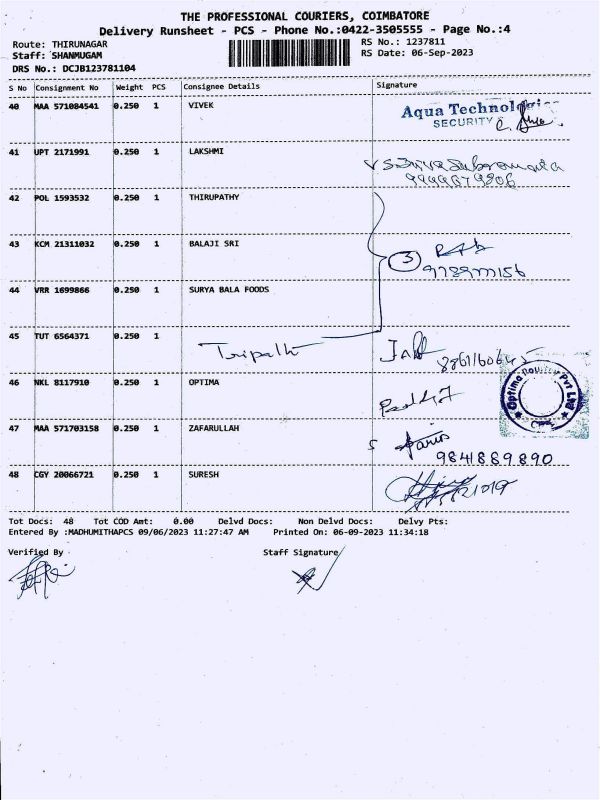 THE PROFESSIONAL COURIERS, COIMBATORE
Delivery Runsheet - PCS - Phone No.:0422-3505555 - Page No.:4
Route: THIRUNAGAR RS No.: 1237811
Staff: SHANMUGAM RS Date: 06-Sep-2023
DRS No.: DCJB123781104
S No Consignment No Weight PCS Consignee Details Signature
40 MAA 571084541 0.250 1 VIVEK Aqua Technologies
SECURITY
41 UPT 2171991 0.250 1 LAKSHMI
42 POL 1593532 0.250 1 THIRUPATHY
43 KCM 21311032 0.250 1 BALAJI SRI 3
44 VRR 1699866 0.250 1 SURYA BALA FOODS
45 TUT 6564371 0.250 1 Tripathi
46 NKL 8117910 0.250 1 OPTIMA
Optima Pvt Ltd
47 MAA 571703158 0.250 1 ZAFARULLAH
9841889890
48 CGY 20066721 0.250 1 SURESH
Tot Docs: 48 Tot COD Amt: 0.00 Delvd Docs: Non Delvd Docs: Delvy Pts:
Entered By :MADHUMITHAPCS 09/06/2023 11:27:47 AM Printed On: 06-09-2023 11:34:18
Verified By Staff Signature